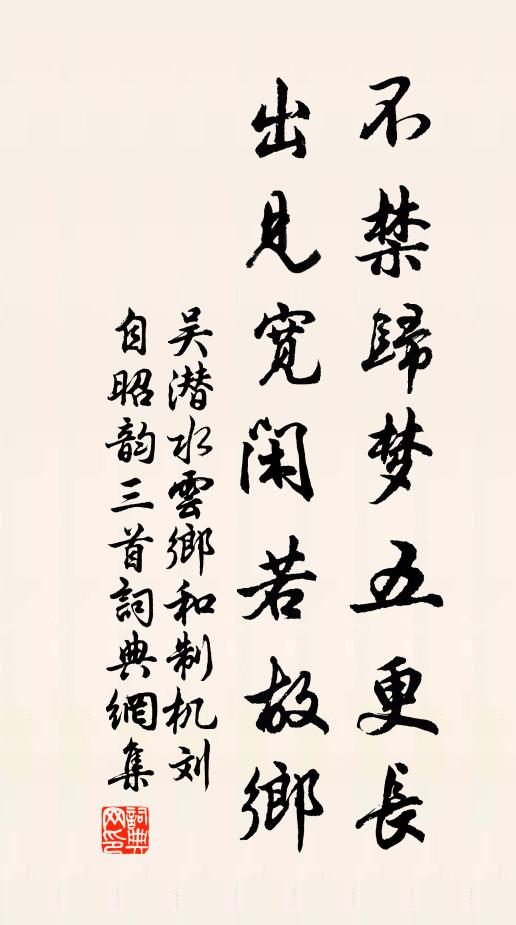 不禁歸梦五更長
出見寬閑若故鄉
吴潜水雲鄉和制机刘
自昭韵三首詞典網集
詞典
网印